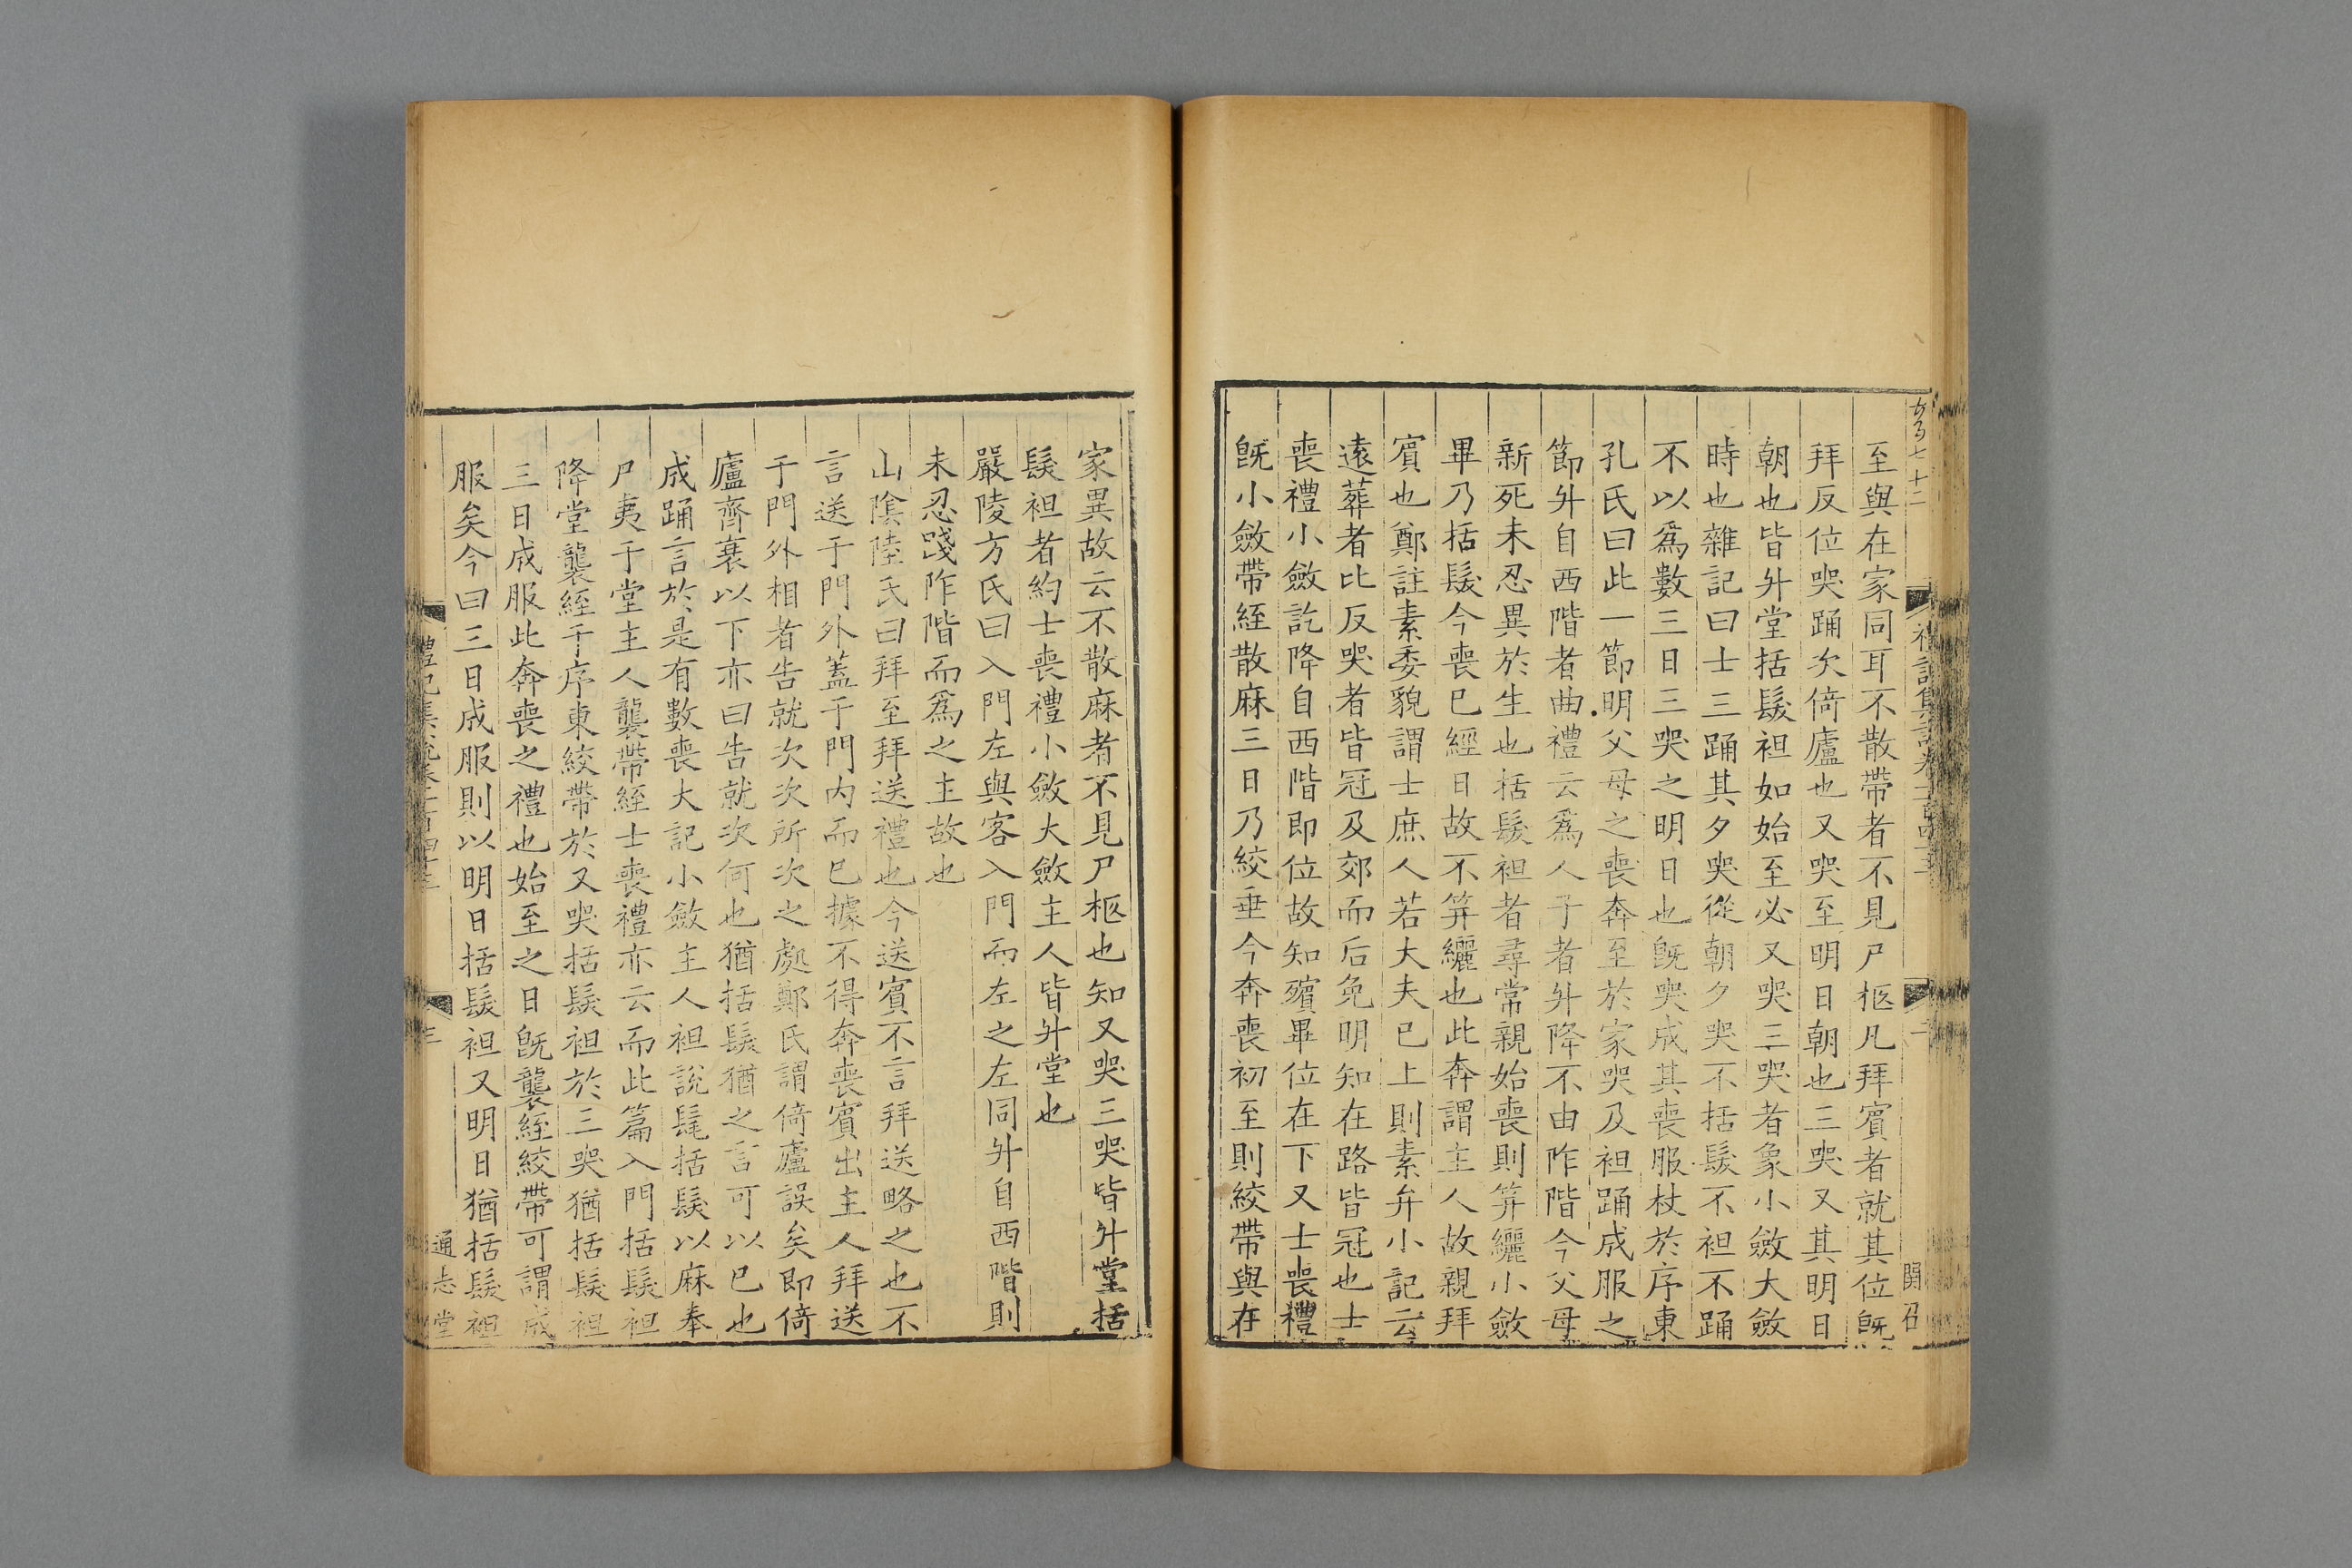 至與在家同耳不散帶者不見尸柩凡拜賓者就其位旣
拜反位哭踊次倚廬也又哭至明日朝也三哭又其明日
朝也皆升堂括髮袒如始至必又哭三哭者象小斂大斂
時也雜記曰士三踊其夕哭從朝夕哭不括髮不袒不踊
不以爲數三日三哭之明日也旣哭成其喪服杖於序東
孔氏曰此一節明父母之喪奔至於家哭及袒踊成服之
節升自西階者曲禮云爲人子者升降不由阼階今父母
新死未忍異於生也括髮袒者尋常親始喪則笄纚小斂
畢乃括髮今喪已經日故不笄纚也此奔謂主人故親拜
賓也鄭註素委貌謂士庶人若大夫已上則素弁小記云
遠葬者比反哭者皆冠及郊而后免明知在路皆冠也士
喪禮小斂訖降自西階即位故知殯畢位在下又士喪禮
旣小斂帶絰散麻三日乃絞垂今奔喪初至則絞帶與在
家異故云不散麻者不見尸柩也知又哭三哭皆升堂括
髮袒者約士喪禮小斂大斂主人皆升堂也
嚴陵方氏曰入門左與客入門而左之左同升自西階則
未忍踐阼階而爲之主故也
山陰陸氏曰拜至拜送禮也今送賓不言拜送略之也不
言送于門外蓋于門內而已據不得奔喪賓出主人拜送
于門外相者告就次次所次之處鄭氏謂倚廬誤矣即倚
廬齊衰以下亦曰告就次何也猶括髮猶之言可以已也
成踊言於是有數喪大記小斂主人袒說髦括髮以麻奉
尸夷于堂主人襲帶絰士喪禮亦云而此篇入門括髮袒
降堂襲絰于序東絞帶於又哭括髮袒於三哭猶括髮袒
三日成服此奔喪之禮也始至之日旣襲絰絞帶可謂成
服矣今曰三日成服則以明日括髮袒又明日猶括髮袒
通志堂